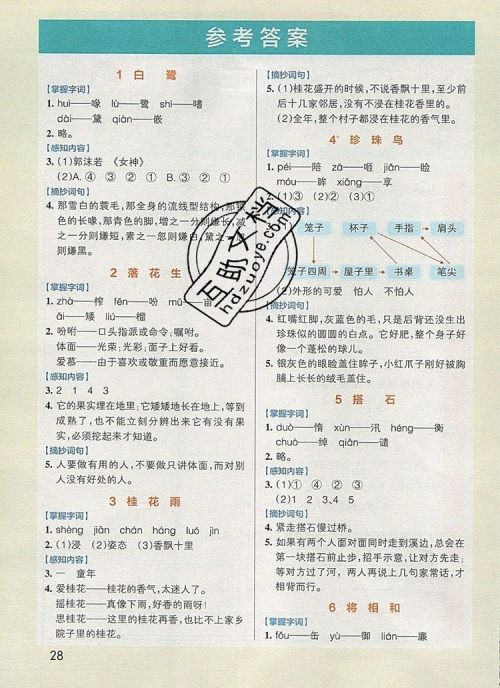 参考答案
1 白 鹭
【掌握字词】
1. huì——喙 lù——鹭 shì——嗜
dài——黛 qiàn——嵌
2. 略。
【感知内容】
3. (1)郭沫若 《女神》
(2)A. ④ ③ ② ① B. ③ ② ①
【摘抄词句】
4. 那雪白的蓑毛,那全身的流线型结构,那
色的长喙,那青色的脚,增之一分则嫌长,减
之一分则嫌短,素之一忽则嫌白,黛之一
则嫌黑。
2 落 花 生
【掌握字词】
1. zhà——榨 fēn——吩 mǔ——亩
ǎi——矮 liú——榴
2. 吩咐——口头指派或命令;嘱咐。
体面——光荣;光彩;面子上好看。
爱慕——由于喜欢或敬重而愿意接近。
【感知内容】
3. 2 1 4 3
4. 它的果实埋在地里;它矮矮地长在地上,等到
成熟了,也不能立刻分辨出来它有没有果
实,必须挖起来才知道。
【摘抄词句】
5. 人要做有用的人,不要做只讲体面,而对别
人没有好处的人。
3 桂 花 雨
【掌握字词】
1. shèng jiān chán háng luó jìn
2. (1)浸 (2)姿态 (3)香飘十里
【感知内容】
3. 一 童年
4. 爱桂花——桂花的香气,太迷人了。
摇桂花——真像下雨,好香的雨呀!
思桂花——这里的桂花再香,也比不上家乡
院子里的桂花。
28
【摘抄词句】
5. (1)桂花盛开的时候,不说香飘十里,至少前
后十几家邻居,没有不浸在桂花香里的。
(2)全年,整个村子都浸在桂花的香气里。
4* 珍 珠 鸟
【掌握字词】
1. péi——陪 zā——咂 jiǎn——睑
móu——眸 xiǎng——享
2. (1)③ (2)② (3)①
【感知内容】
笼子 杯子 手指 肩头
笼子四周 屋子里 书桌 笔尖
(2)外形的可爱 怕人 不怕人
【摘抄词句】
4. 红嘴红脚,灰蓝色的毛,只是后背还没生出
珍珠似的圆圆的白点。它好肥,整个身子好
像一个蓬松的球儿。
5. 银灰色的眼睑盖住眸子,小红爪子刚好被胸
脯上长长的绒毛盖住。
5 搭 石
【掌握字词】
1. duò——惰 xùn——汛 héng——衡
chuò——绰 qiǎn——谴
2. 略。
【感知内容】
3. (1)① ④ ② ③
(2)1 2 3、4 5
【摘抄词句】
4. 紧走搭石慢过桥。
5. 如果有两个人面对面同时走到溪边,总会在
第一块搭石前止步,招手示意,让对方先走;
等对方过了河, 两人再说上几句家常话,才
相背而行。
6 将 相 和
【掌握字词】
1. fǒu——缶 yù——御 lián——廉
互助文档
hdzuoye.com